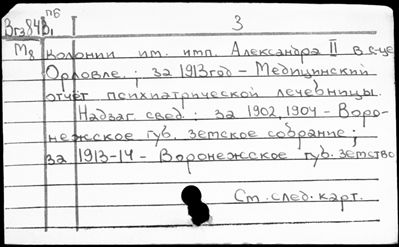 Вгз84В1 пб 3
М8 Колонии им. имп. Александра II в с-це
Орловле.; за 1913год - Медицинский
отчет психиатрической лечебницы.
Надзаг. свед.: за 1902, 1904 - Воро-
нежское губ. земское собрание;
за 1913-14 - Воронежское губ. земство
См. след. карт.